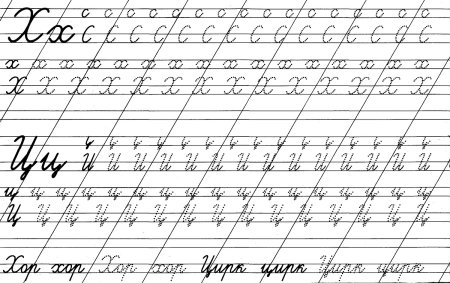 Х х с с с с с с с с с с с с с с с с
С С С С С С С С С С С С С С С С
х х х х х х х х х х х х х х х х
Х Х Х Х Х Х Х Х Х Х Х Х Х Х
Ц ц И И И И И И И И И И И И И И
ц ц ц ц ц ц ц ц ц ц ц ц ц ц ц ц
Ц Ц Ц Ц Ц Ц Ц Ц Ц Ц Ц Ц Ц Ц
Хор хор Хор хор Цирк цирк Цирк цирк